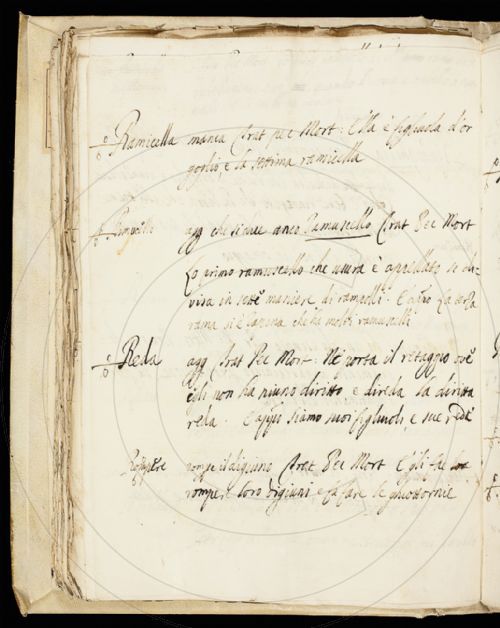 Ramicella manca Trat pec Mort: Ella è figliuola d'or
goglio, e la settima ramicella
agg che si dice anco Ramuscello Trat Pec Mort
Lo primo ramuscello che usura è appellato se di
visa in sette maniere di
rama si è la pena che ha molti ramuscelli
Reda agg Trat Pec Mor: Ne porta il retaggio ov'
egli non ha niuno diritto, e direda la diritta
reda. E appo siamo suoi figliuoli, e sue rede
Rompere rompe il digiuno Trat Pec Mort Egli fae
rompere loro digiuni e fa fare le ghiottornie